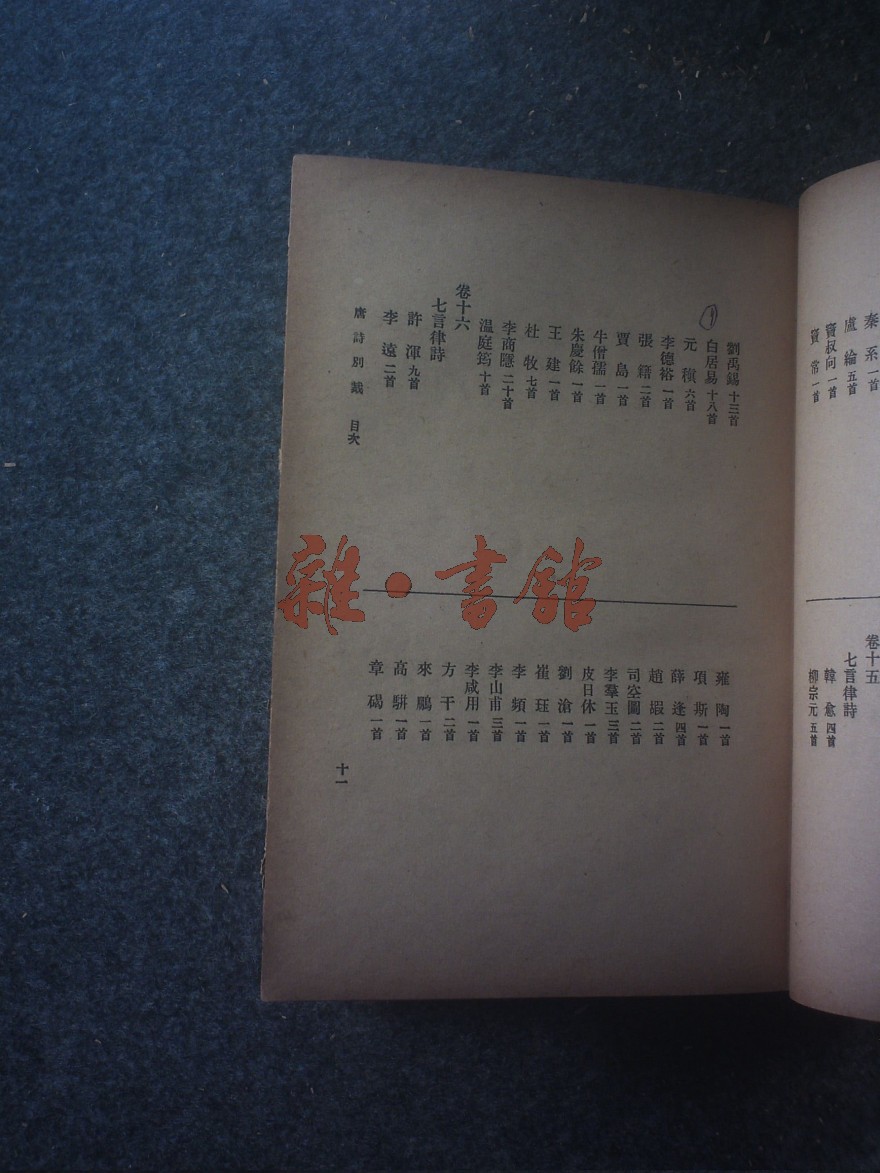 秦系 一首
盧綸 五首
竇叔向 一首
竇常 一首
卷十五
七言律詩
韓愈 四首
柳宗元 五首
劉禹錫 十三首
白居易 十八首
元稹 六首
李德裕 一首
張籍 二首
賈島 一首
牛僧孺 一首
朱慶餘 一首
王建 一首
杜牧 七首
李商隱 二十首
溫庭筠 十首
卷十六
七言律詩
許渾 九首
李遠 二首
雍陶 一首
項斯 一首
薛逢 四首
趙嘏 二首
司空圖 二首
李羣玉 三首
皮日休 一首
劉滄 一首
崔珏 一首
李頻 一首
李山甫 三首
李咸用 一首
方干 二首
來鵬 一首
高駢 一首
章碣 一首
唐詩別裁 目次
十一
雜·書館